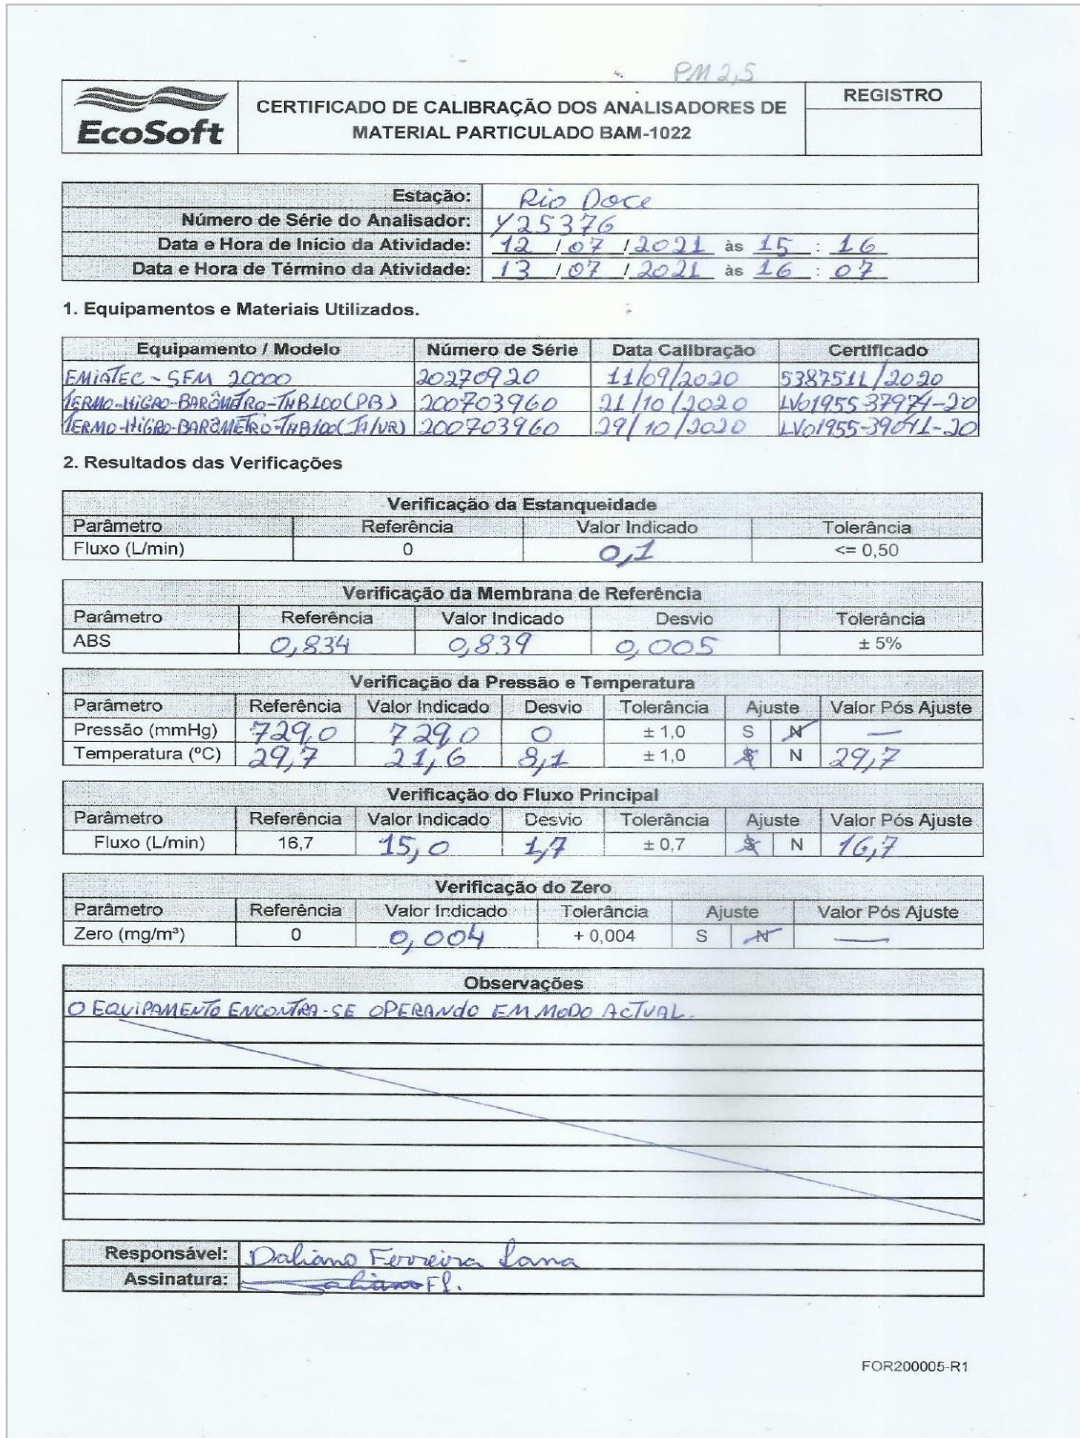 PM 2,5
EcoSoft
CERTIFICADO DE CALIBRAÇÃO DOS ANALISADORES DE
MATERIAL PARTICULADO BAM-1022
REGISTRO
Estação: Rio Doce
Número de Série do Analisador: Y25376
Data e Hora de Início da Atividade: 12 / 07 / 2021 às 15 : 16
Data e Hora de Término da Atividade: 13 / 07 / 2021 às 16 : 07
1. Equipamentos e Materiais Utilizados.
Equipamento / Modelo Número de Série Data Calibração Certificado
EMIATEC - SFM 20000 20270920 11/09/2020 5387511/2020
TERMO-HIGRO-BARÔMETRO-THB100(PB) 200703960 21/10/2020 LV01955-37974-20
TERMO-HIGRO-BARÔMETRO-THB100 200703960 29/10/2020 LV01955-39041-20
2. Resultados das Verificações
Verificação da Estanqueidade
Parâmetro Referência Valor Indicado Tolerância
Fluxo (L/min) 0 0,1 <= 0,50
Verificação da Membrana de Referência
Parâmetro Referência Valor Indicado Desvio Tolerância
ABS 0,834 0,839 0,005 ± 5%
Verificação da Pressão e Temperatura
Parâmetro Referência Valor Indicado Desvio Tolerância Ajuste Valor Pós Ajuste
Pressão (mmHg) 729,0 729,0 0 ± 1,0 S N —
Temperatura (ºC) 29,7 21,6 8,1 ± 1,0 S N 29,7
Verificação do Fluxo Principal
Parâmetro Referência Valor Indicado Desvio Tolerância Ajuste Valor Pós Ajuste
Fluxo (L/min) 16,7 15,0 1,7 ± 0,7 S N 16,7
Verificação do Zero
Parâmetro Referência Valor Indicado Tolerância Ajuste Valor Pós Ajuste
Zero (mg/m³) 0 0,004 + 0,004 S N —
Observações
O EQUIPAMENTO ENCONTRA-SE OPERANDO EM MODO ACTUAL.
Responsável: Daliano Ferreira Lana
Assinatura: Daliano F L.
FOR200005-R1